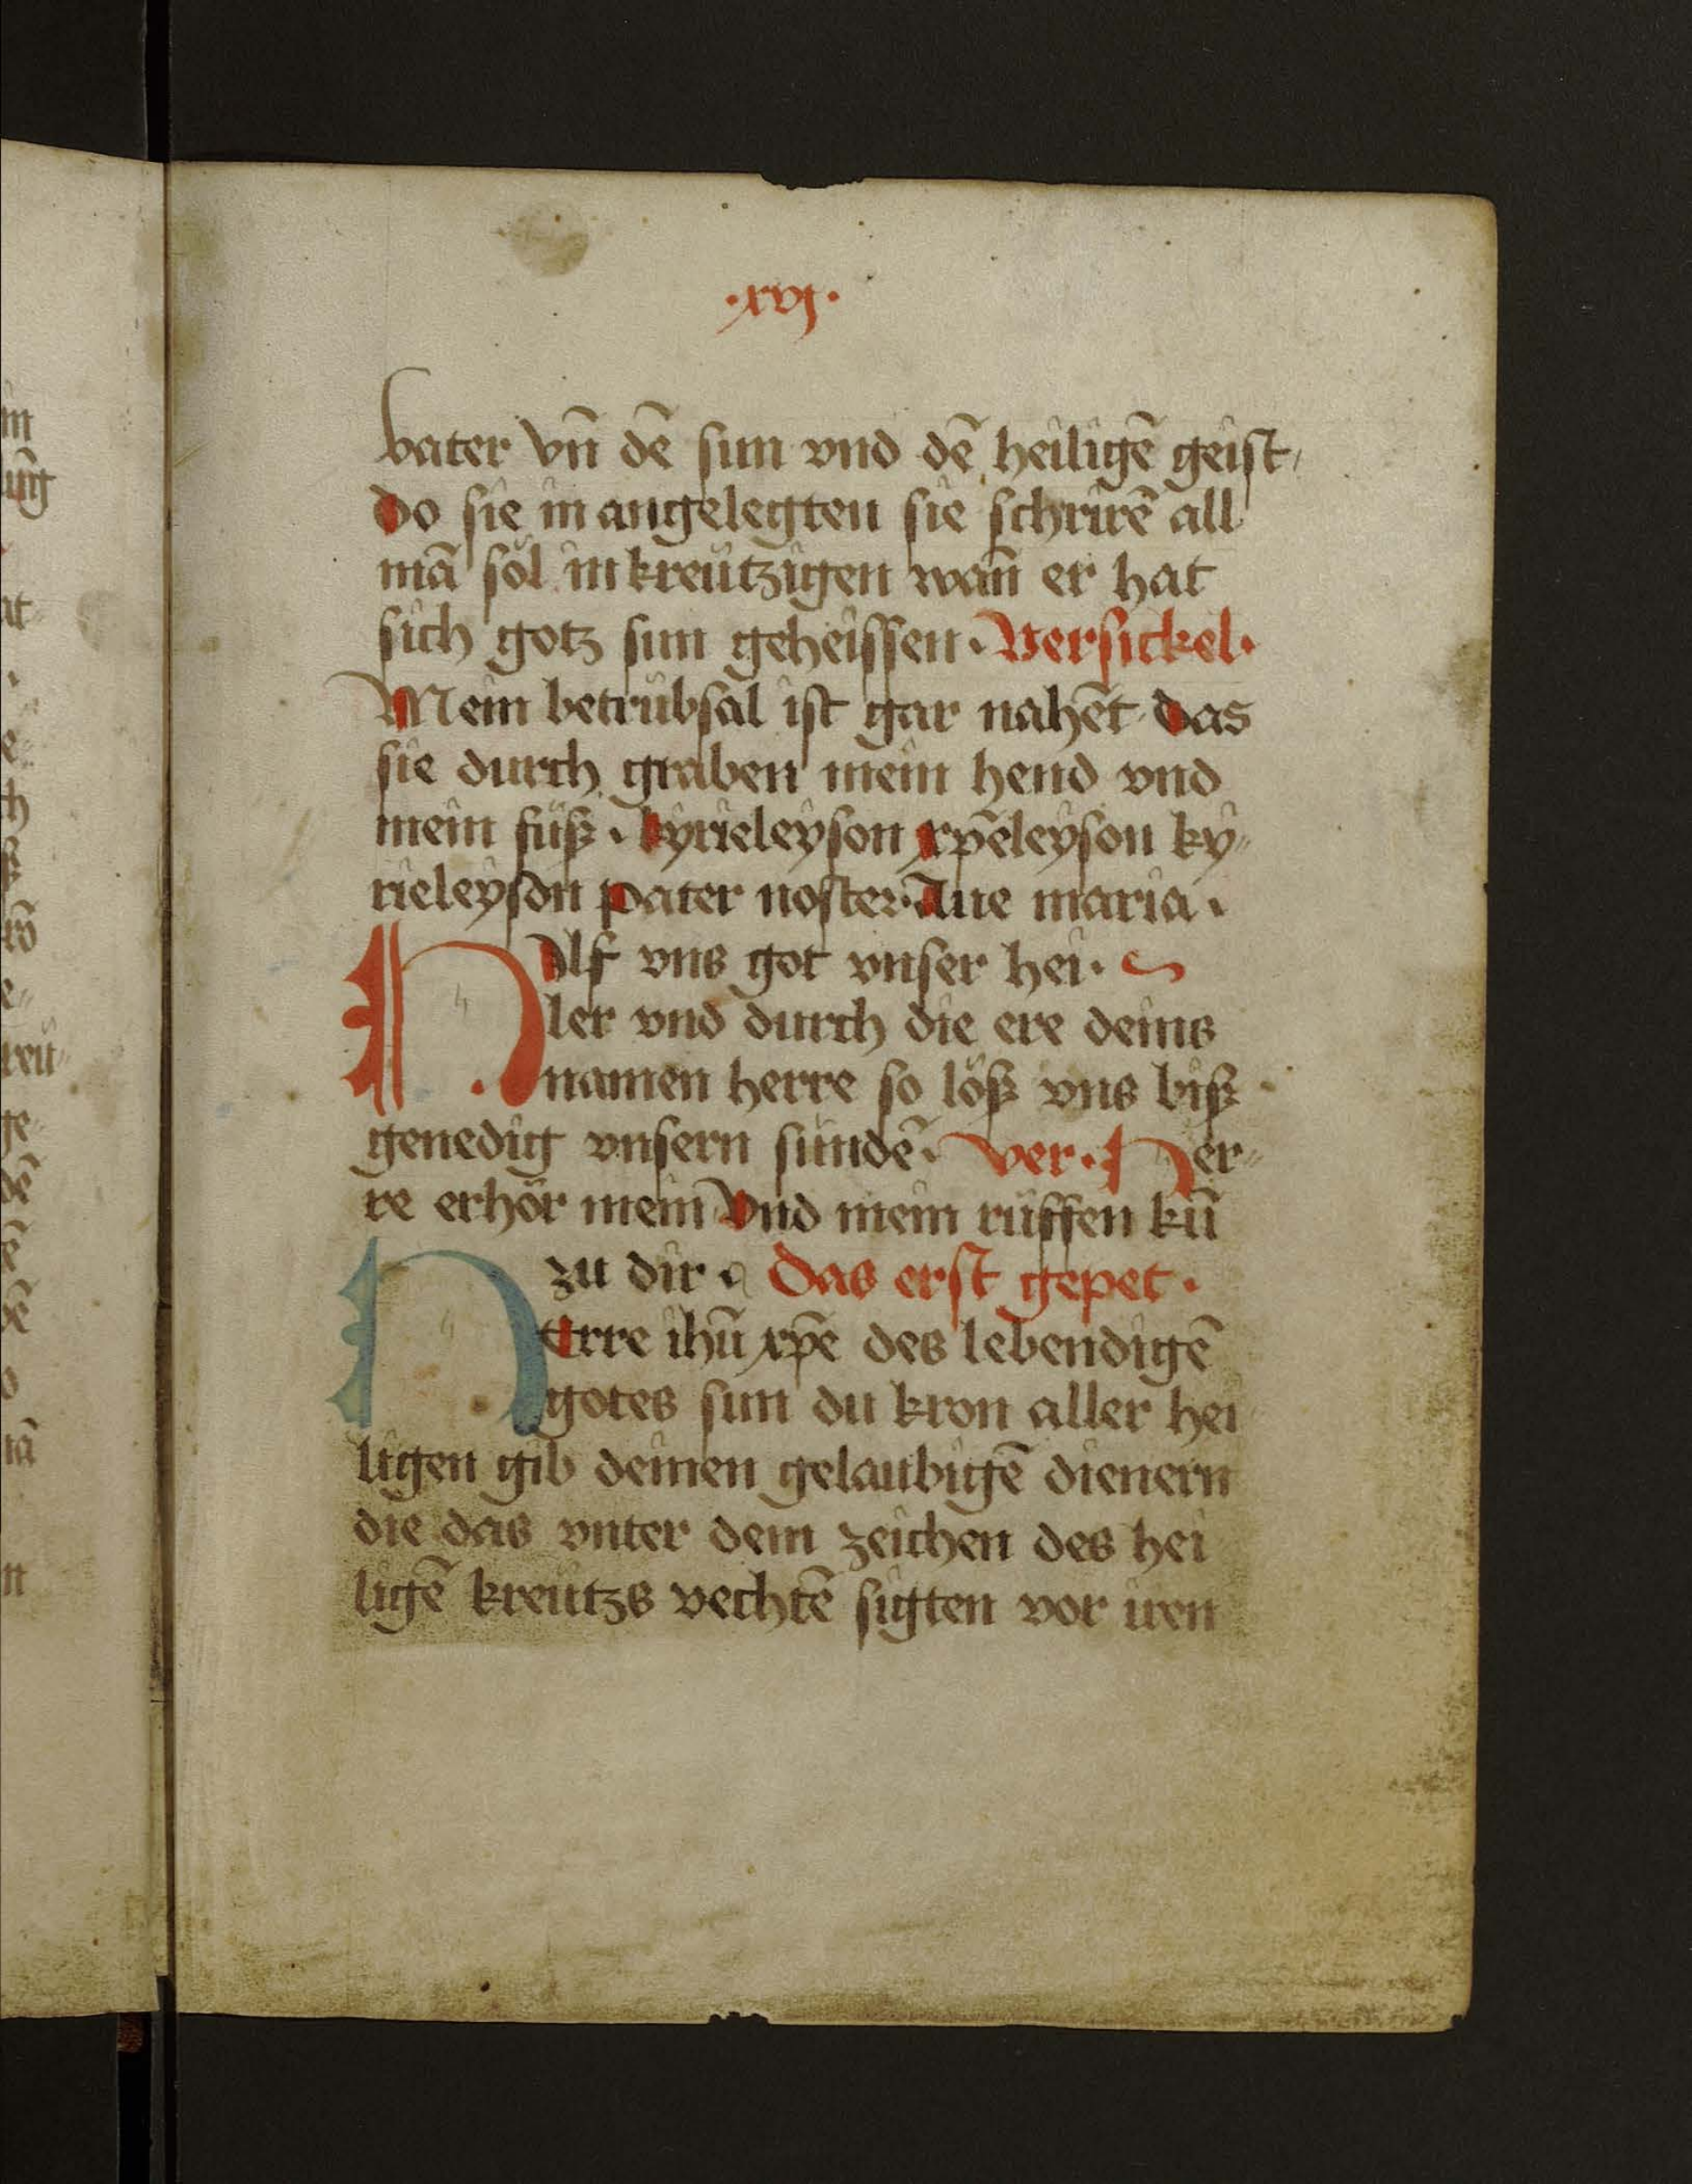 ·xvj·
vater vn̄ dē sun vnd dē heiligē geist
Do sie in angelegten sie schrirē all
mā söl in kreützigen wan̄ er hat
sich gotz sun geheissen · Versickel ·
Mein betrübsal ist gar nahēt das
sie durch graben mein hend vnd
mein füß · kyrieleyson xp̄eleyson ky-
rieleyson pater noster Aue maria ·
Hilf vns got vnser hei·
ler vnd durch die ere deins
namen herre so löß vns biß
genedig vnsern sündē · ver · Her-
re erhör mein Vnd mein rüffen kū
zu dir · Das erst gepet ·
HErre ihū xp̄e des lebendigē
gotes sun du kron aller hei
ligen gib deinen gelaubigē dienern
die das vnter dem zeichen des hei
ligē kreützs vechtē sigten vor iren